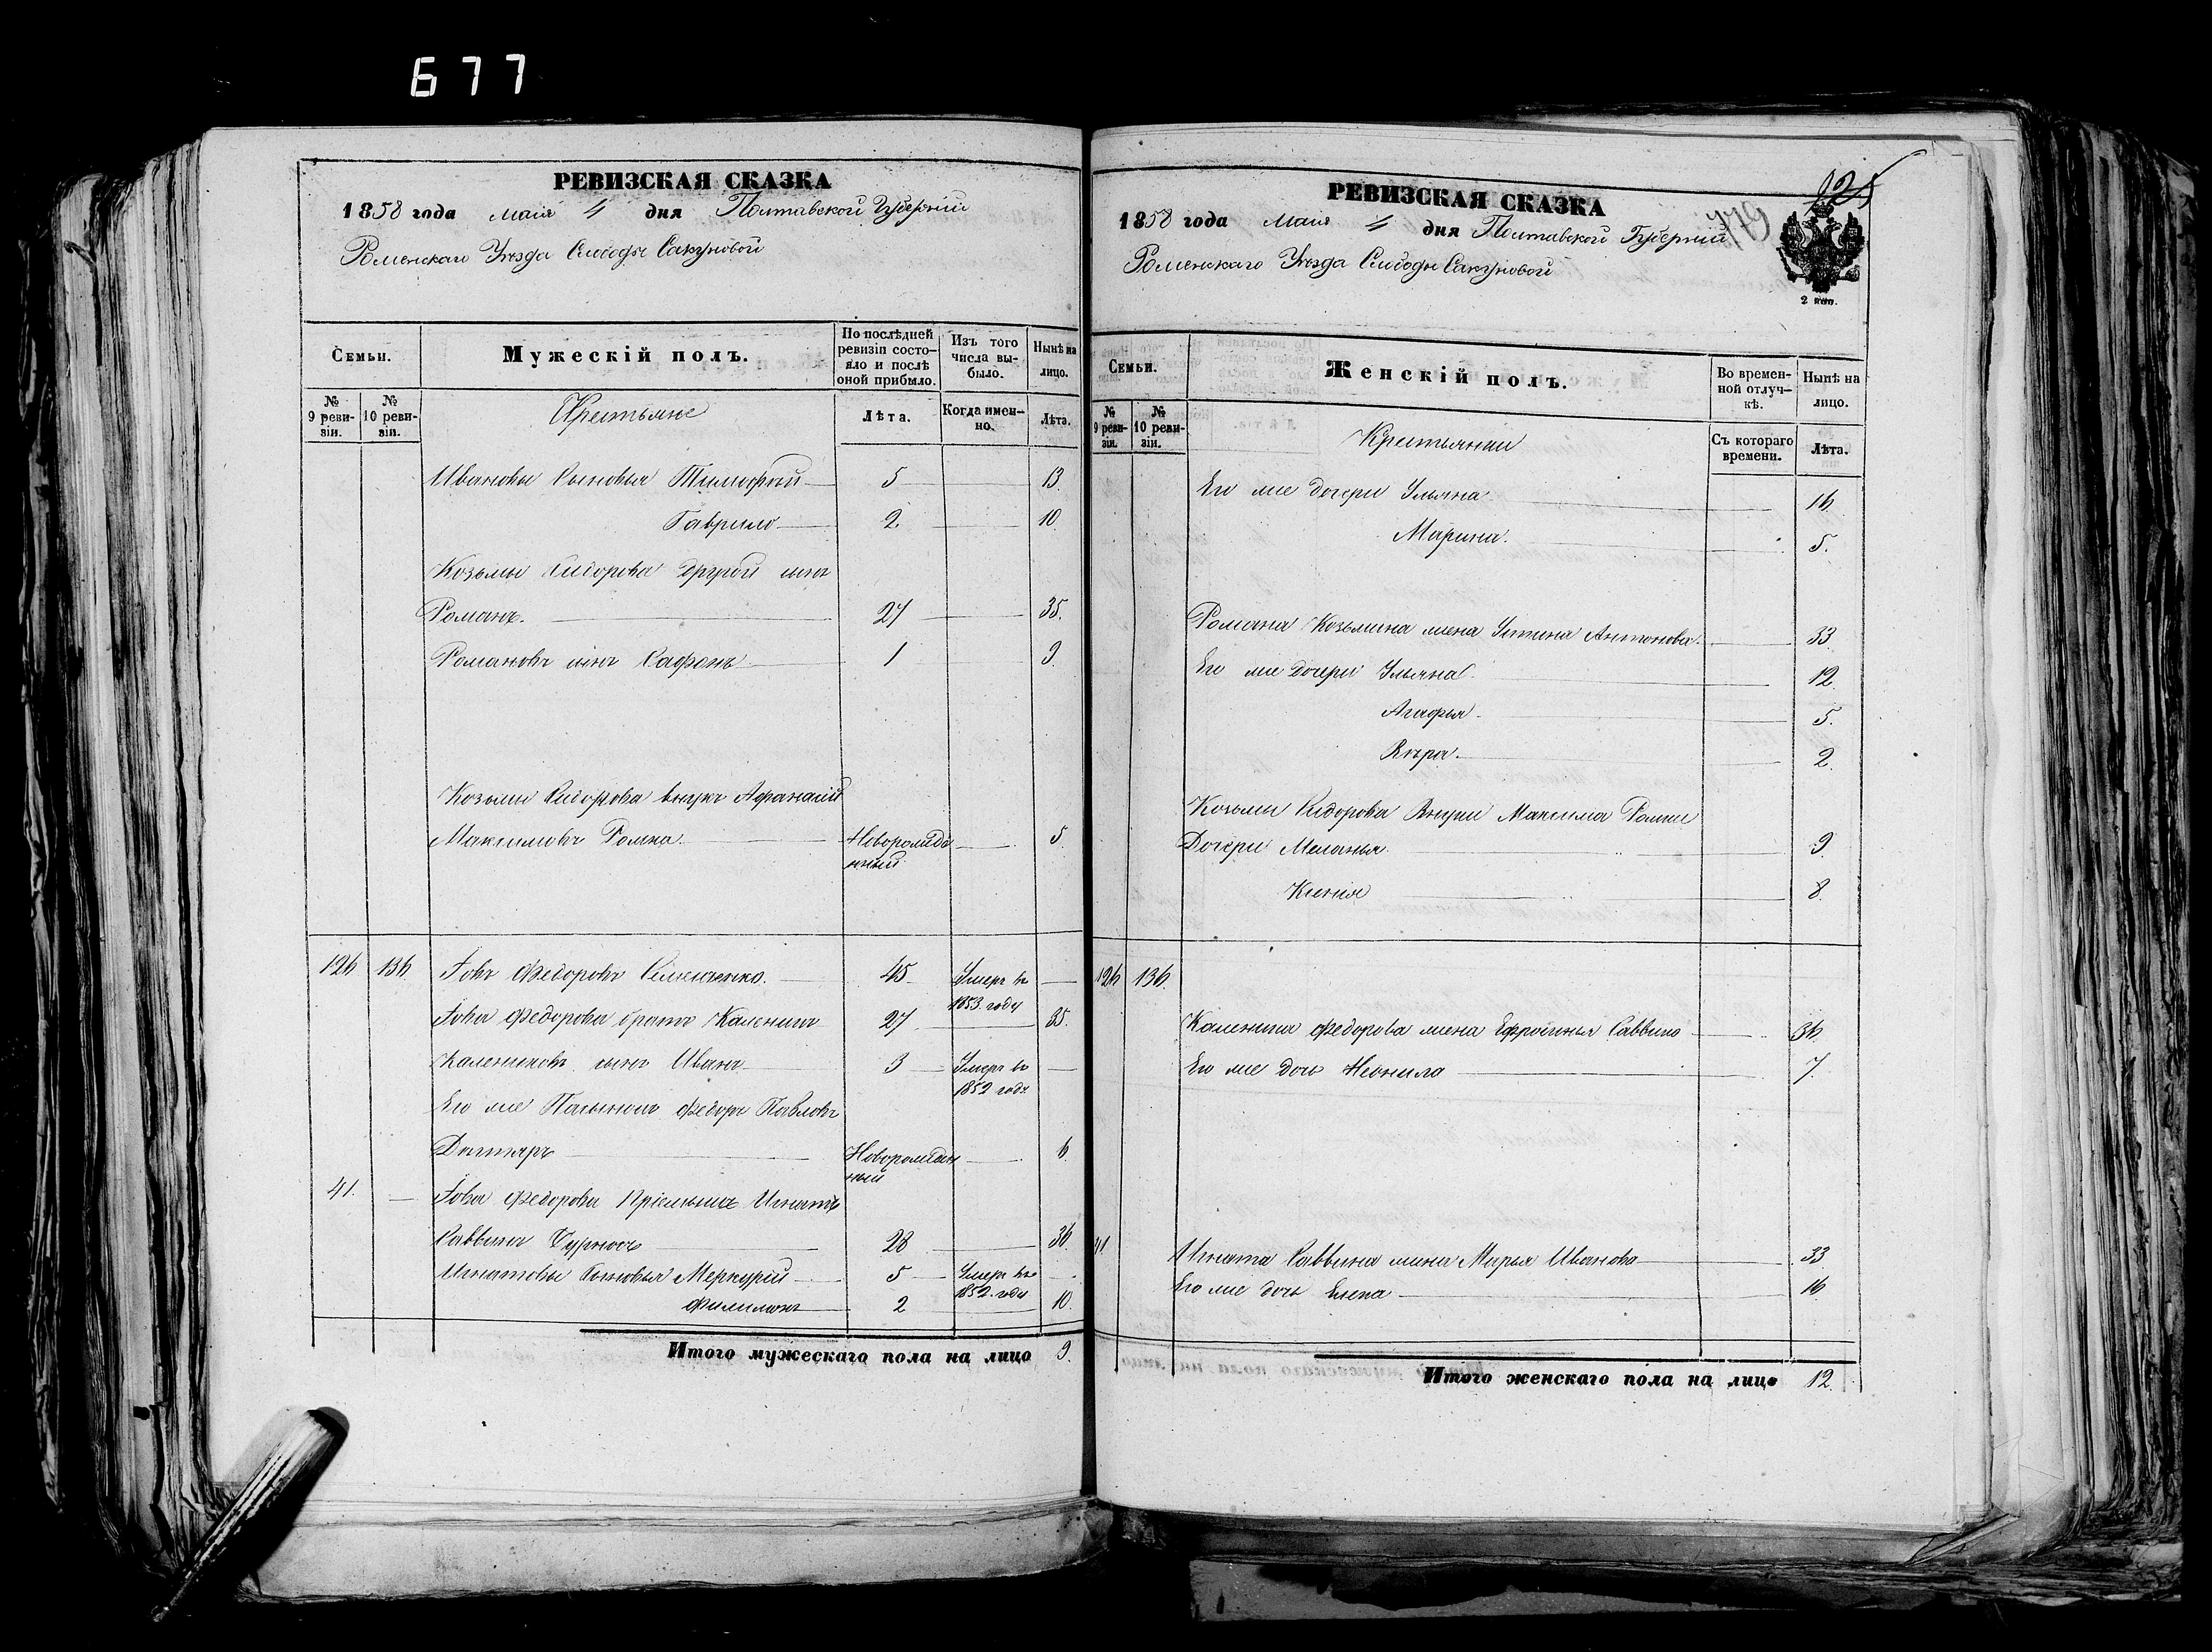 677
РЕВИЗСКАЯ СКАЗКА
1858 года маія 4 дня Полтавской Губерніи
Роменскаго Уезда Слободы Сакуновой
Семьи.
Мужескій полъ.
По послѣдней ревизіи состояло и послѣ оной прибыло.
Изъ того числа выбыло.
Нынѣ на лицо.
№ 9 ревизіи.
№ 10 ревизіи.
Крестьяне
Лѣта.
Когда именно.
Лѣта.
Ивановы сыновья Тимофей 5 13.
Гаврило 2 10
Козьмы Сидорова другой сынъ
Романъ. 27 35.
Романовъ сынъ Сафонъ 1 9
Козьмы Сидорова внукъ Афанасій
Максимовъ Ролка. Новорожденный 5
126 136 Іовъ Федоровъ 45 Умеръ въ 1853 году
Іова Федорова братъ Каленикъ 27 35.
Калениковъ сынъ Иванъ 3 Умеръ въ 1852 году
Его же Пасынокъ Федоръ Павловъ
Новорожденный 6
41. Іова Федорова Пріемышъ Игнатъ
Саввинъ 28 36
Игнатовы Сыновья Меркурій 5 Умеръ въ 1852 году
Филимонъ 2 10
Итого мужескаго пола на лицо 9.
РЕВИЗСКАЯ СКАЗКА
225
779
1858 года Маія 4 дня Полтавской Губерніи
Роменскаго Уезда Слободы Сакуновой
2 коп.
Семьи.
Женскій полъ.
Во временной отлучкѣ.
Нынѣ на лицо.
№ 9 ревизіи.
№ 10 ревизіи.
Крестьянки
Съ котораго времени.
Лѣта.
Его же дочери Ульяна 16
Марина. 5.
Романа Козьмина жена Устина Антонова. 33.
Его же Дочери Ульяна 12.
Агафья. 5.
Вѣра. 2.
Козьмы Сидорова Внуки Максима Ролки
Дочери Меланья. 9
Ксенія 8
126 136.
Каленика Федорова жена Ефросинья Саввина 36.
Его же дочь Неонила 7.
41 Игната Саввина жена Марья Иванова 33
Его же дочь Елена 16
Итого женскаго пола на лицо 12.